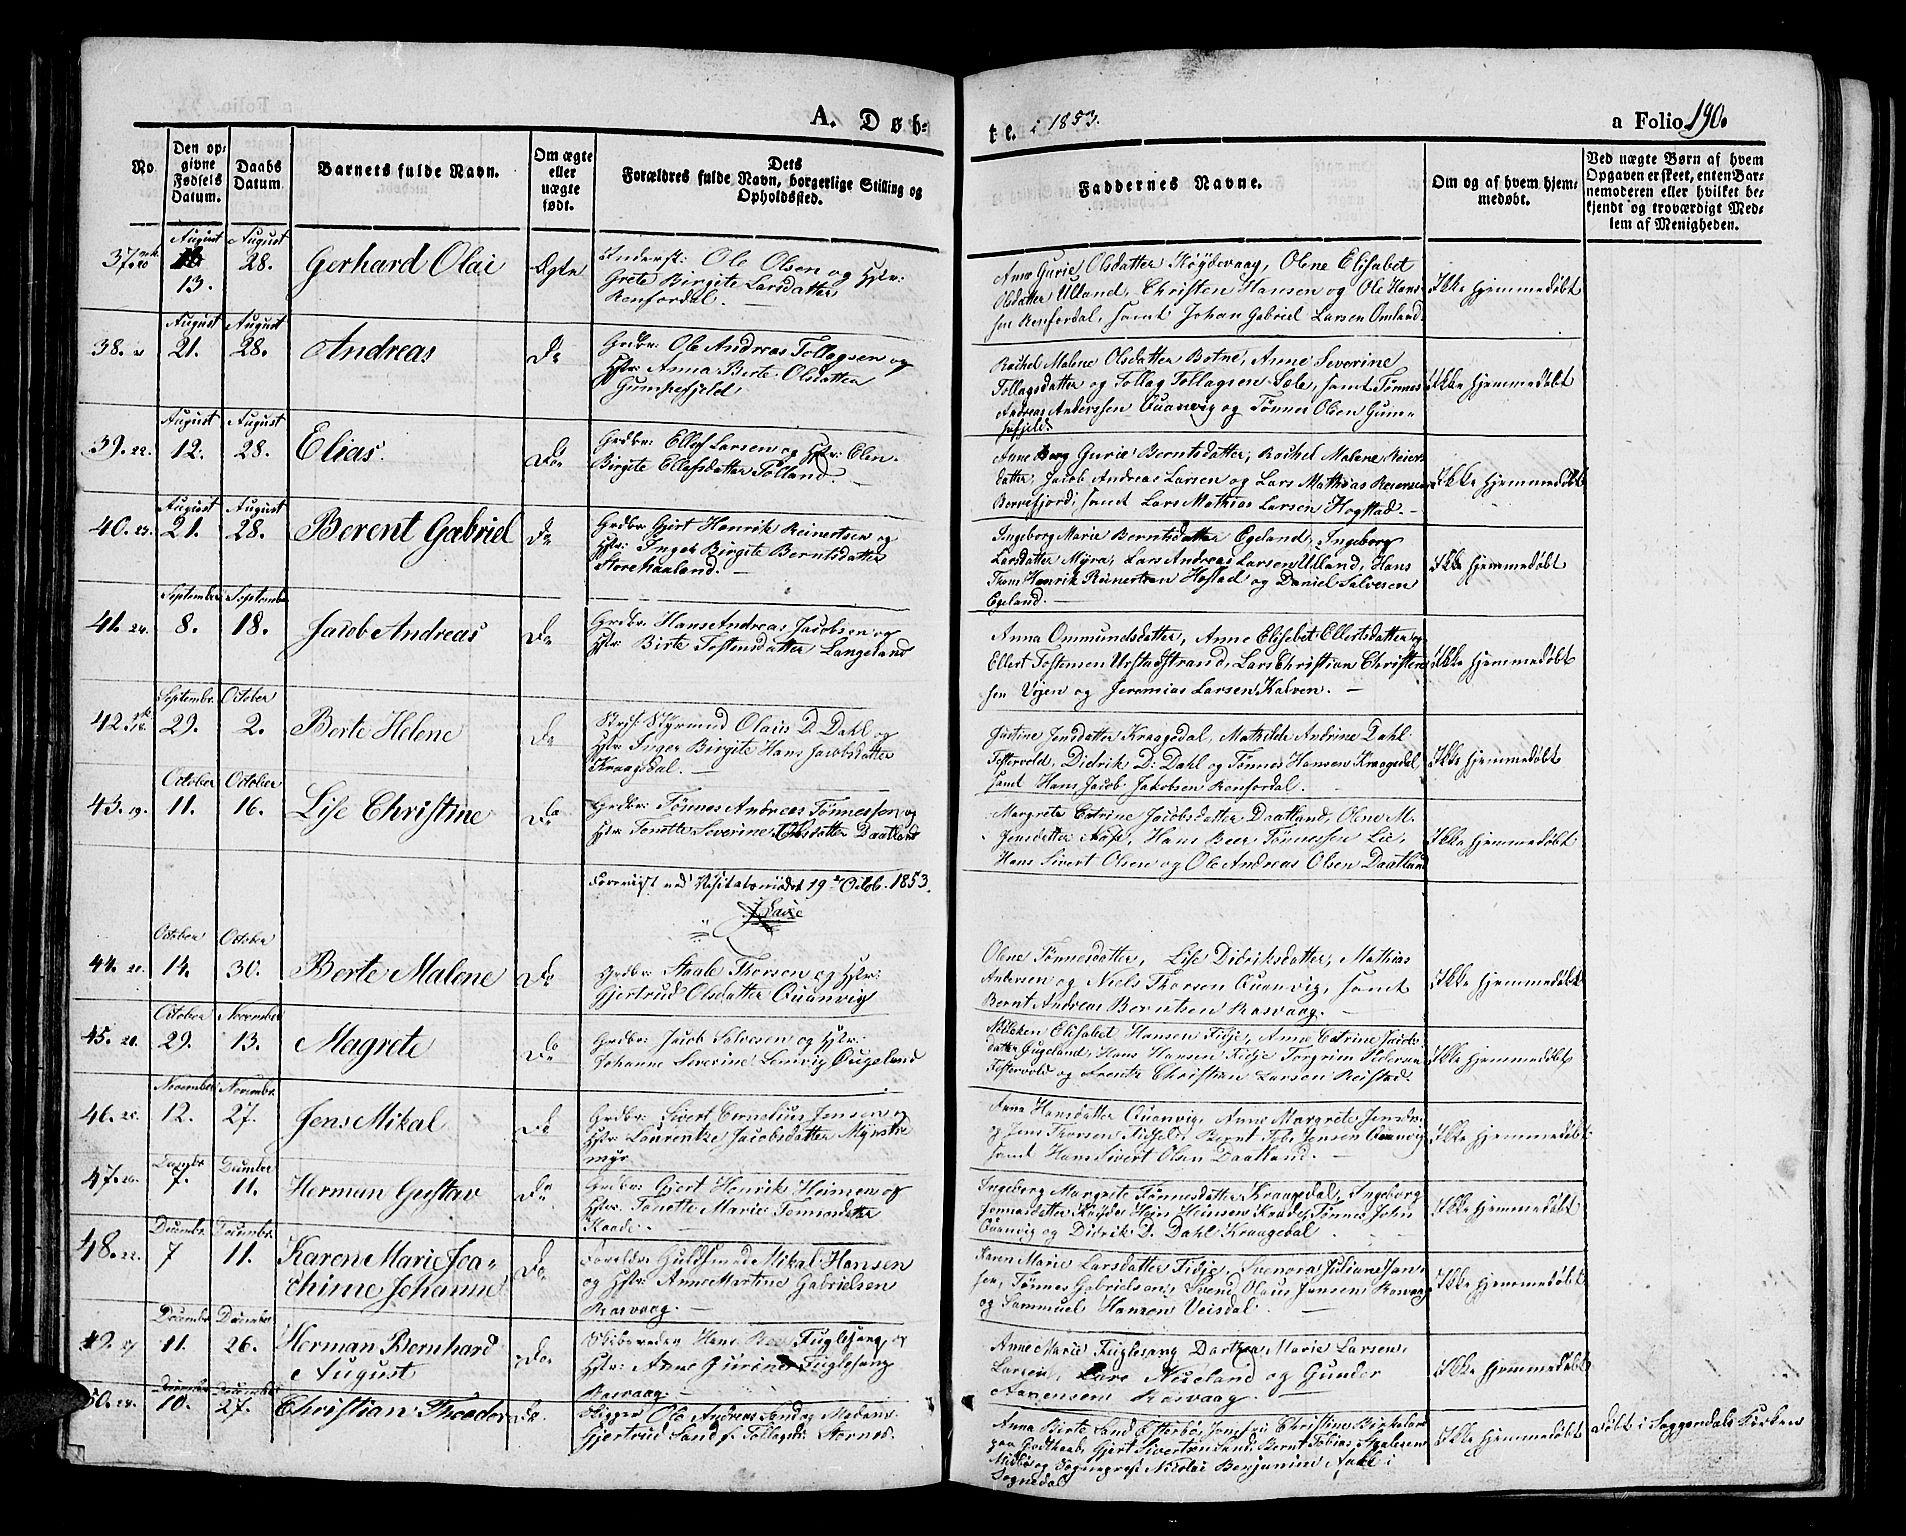 A. Døb-
te. i 1853.
a Folio 190.
No.
Den op-
givne
Fødsels
Datum.
Daabs
Datum
Barnets fulde Navn.
Om ægte
eller
uægte
født.
Dets
Forældres fulde Navn, borgerlige Stilling og
Opholdssted.
Faddernes Navne.
Om og af hvem hjem-
medøbt.
Ved uægte Børn af hvem
Opgaven er skeet, enten Bar-
nemoderen eller hvilket be-
kjendt og troværdigt Med-
lem af Menigheden.
37.
August
13.
August
28.
Gerhard Olai
Ægte
Inderst: Ole Olsen og Hstr:
Grete Birgite Larsdatter
Renfordal.
Anne Gurie Olsdatter Røydevaag, Olene Elisabet
Olsdatter Ulland, Christen Hansen og Ole Han-
sen Renfordal, samt Johan Gabriel Larsen Omland.
Ikke hjemmedøbt
38.
August
21.
August
28.
Andreas
Do
Grdbr: Ole Andreas Tollagsen og
Hstr: Anna Berte Olsdatter
Gumpefjeld
Rachel Malene Olsdatter Botne, Anne Severine
Tollagsdatter og Tollag Tollagsen Lele, samt Tønnes
Andreas Anderssen Quanvig og Tønnes Olsen Gum-
pefjeld.
Ikke hjemmedøbt
39. 22.
August
12.
August
28.
Elias.
Do.
Grdbr: Ellef Larsen og Hstr: Elen
Birgite Ellefsdatter Tolland.
Anne Gurie Berntsdatter, Rachel Malene Reiers-
datter, Jacob Andreas Larsen og Lars Mathias Reiersen
Berrefjord, samt Lars Mathias Larsen Hogstad.
Ikke hjemmedøbt
40. 23.
August
21.
August
28.
Berent Gabriel
Do
Grdbr: Gjert Henrik Reinertsen og
Hstr: Inger Birgite Berntsdatter
Storehaaland.
Ingeborg Marie Berntsdatter Egeland, Ingeborg
Larsdatter Myra, Lars Andreas Larsen Ulland, Hans
Henrik Reinertsen Hostad og Daniel Salvesen
Egeland.
Ikke hjemmedøbt
41. 24.
September
8.
September
18.
Jacob Andreas
Do
Grdbr: Hans Andreas Jacobsen og
Hstr: Birte Tostensdatter Langeland
Anna Ommundsdatter, Anne Elisabet Ellertsdatter og
Ellert Tostensen Urstadstrand, Lars Christian Christen-
sen Vøien og Jeremias Larsen Kalven.
Ikke hjemmedøbt
42. 18.
Septembr.
29.
October
2.
Berte Helene
Do
Strf: Styrmand Olaus D. Dahl og
Hstr: Inger Birgite Hans Jacobsdatter
Kraagedal.
Justine Jensdatter Kraagedal, Mathilde Andrine Dahl
Festervold, Didrik D: Dahl og Tønnes Hansen Kraagedal
samt Hans Jacob Jakobsen Renfordal.
Ikke hjemmedøbt
43. 19.
October
11.
October
16.
Lise Christine
Do
Grdbr: Tønnes Andreas Tønnessen og
Hstr: Tonette Severine Olsdatter Daatland
Margrete Catrine Jacobsdatter Daatland, Olene M.
Jensdatter Aase, Hans Beer Tønnessen Lie,
Hans Sivert Olsen og Ole Andreas Olsen Daatland
Ikke hjemmedøbt
Foreviist ved Visitatsmødet 19de Octob. 1853.
44. 21.
October
14.
October
30.
Berte Malene
Do
Grdbr: Staale Thorsen og Hstr:
Gjertrud Olsdatter Quanvig
Olene Tønnesdatter, Lise Didriksdatter, Mathias
Andersen og Niels Thorsen Quanvig, samt
Bernt Andreas Berntsen Rasvaag.
Ikke hjemmedøbt
45. 20.
October
29.
November
13.
Magrete
Do
Grdbr: Jacob Salvesen og Hstr:
Johanne Severine Lenvig Øigeland
Elisabet Hansen Fidje, Anne Catrine Jacobs-
datter Øugeland, Hans Hansen Fidje, Torgrim Pedersen
Festervold og Frentz Christian Larsen Reistad.
Ikke hjemmedøbt
46. 25.
November
12.
Novembr.
27.
Jens Mikal
Do
Grdbr: Sivert Cornelius Jensen og
Hstr: Laurentze Jacobsdatter Mynste
myr.
Anna Hansdatter Quanvig, Anne Margrete Jensdr.
og Jens Thorsen Fidsel, Bernt Jensen Quanvig
samt Hans Sivert Olsen Daatland.
Ikke hjemmedøbt
47. 26.
Decembr.
7.
December
11.
Herman Gustav
Do
Grdbr: Gjert Henrik Heinsen og
Hstr: Tonette Marie Tønnesdatter
Kaade.
Ingeborg Margrete Tønnesdatter Kraagedal, Ingeborg
Jonnasdatter Røyde, Hein Heinsen Kaade, Tønnes John
Quanvig og Didrik D. Dahl Kraagedal
Ikke hjemmedøbt
48. 22.
Decembr.
7
Decembr.
11.
Karen Marie Joa-
chime Johanne
Do
Foreldr: Guldsmed Mikal Hansen
og Hstr: Anne Martine Gabrielsen
Rasvaag.
Karen Marie Larsdatter Fidje, Svenora Juliane Jan-
sen, Tønnes Gabrielsen, Svend Olaus Jansen Rasvaag
og Sammuel Hansen Veisdal.
Ikke hjemmedøbt
49. 27
Decembr
11.
December
26.
Herman Bernhard
August
Do.
Skibsreder Hans Beer Fuglesang, og
Hstr: Anne Gurine Fuglesang
Rasvaag.
Anne Marie Fuglesang, Dorthea Marie Larsen,
Larsen, Nueland og Gunder
Aanensen Rasvaag.
Ikke hjemmedøbt
50. 28.
Decembr
10.
December
27.
Christian Theodor
Do.
Ligger Ole Andreas Sand og Madame
Gjertrud Sand f. Tollagsdr. Stornes.
Anna Birte Sand Efterbø, Jomfru Christine Birkeland
paa Godthaab, Gjert Sivertsen Sand, Bernt Tobias Staalesen
Midbø og Sogneprest Nicolai Benjamin Aall i
Sognedal
Ikke hjemmedøbt
Døbt i Soggendals Kirken